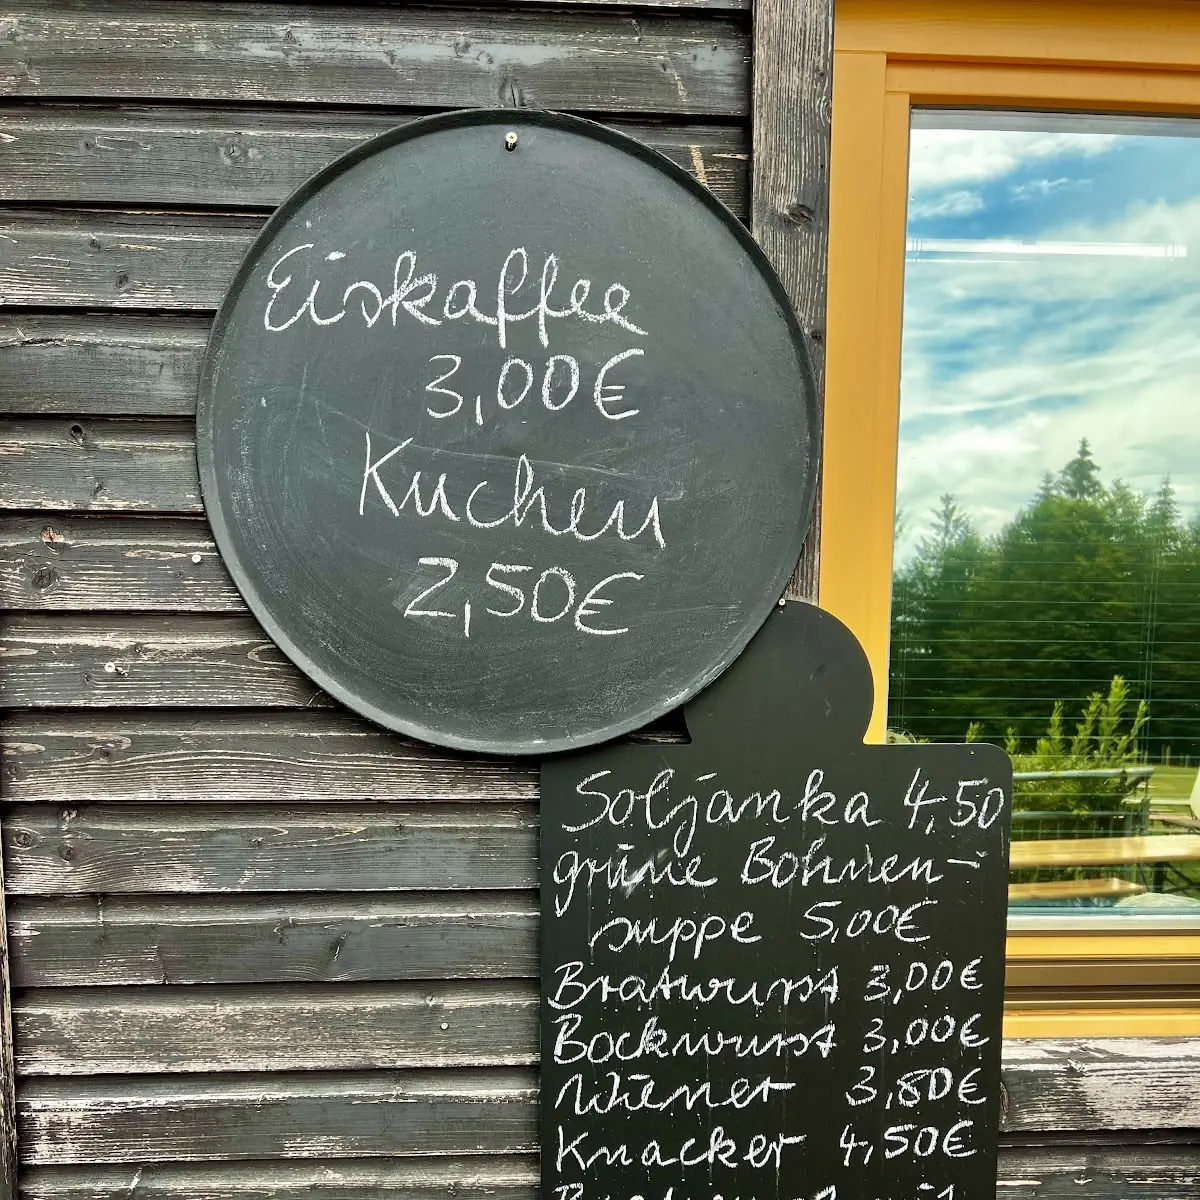 Eiskaffee
3,00€
Kuchen
2,50€
Soljanka 4,50
grüne Bohnen-
suppe 5,00€
Bratwurst 3,00€
Bockwurst 3,00€
Wiener 3,80€
Knacker 4,50€